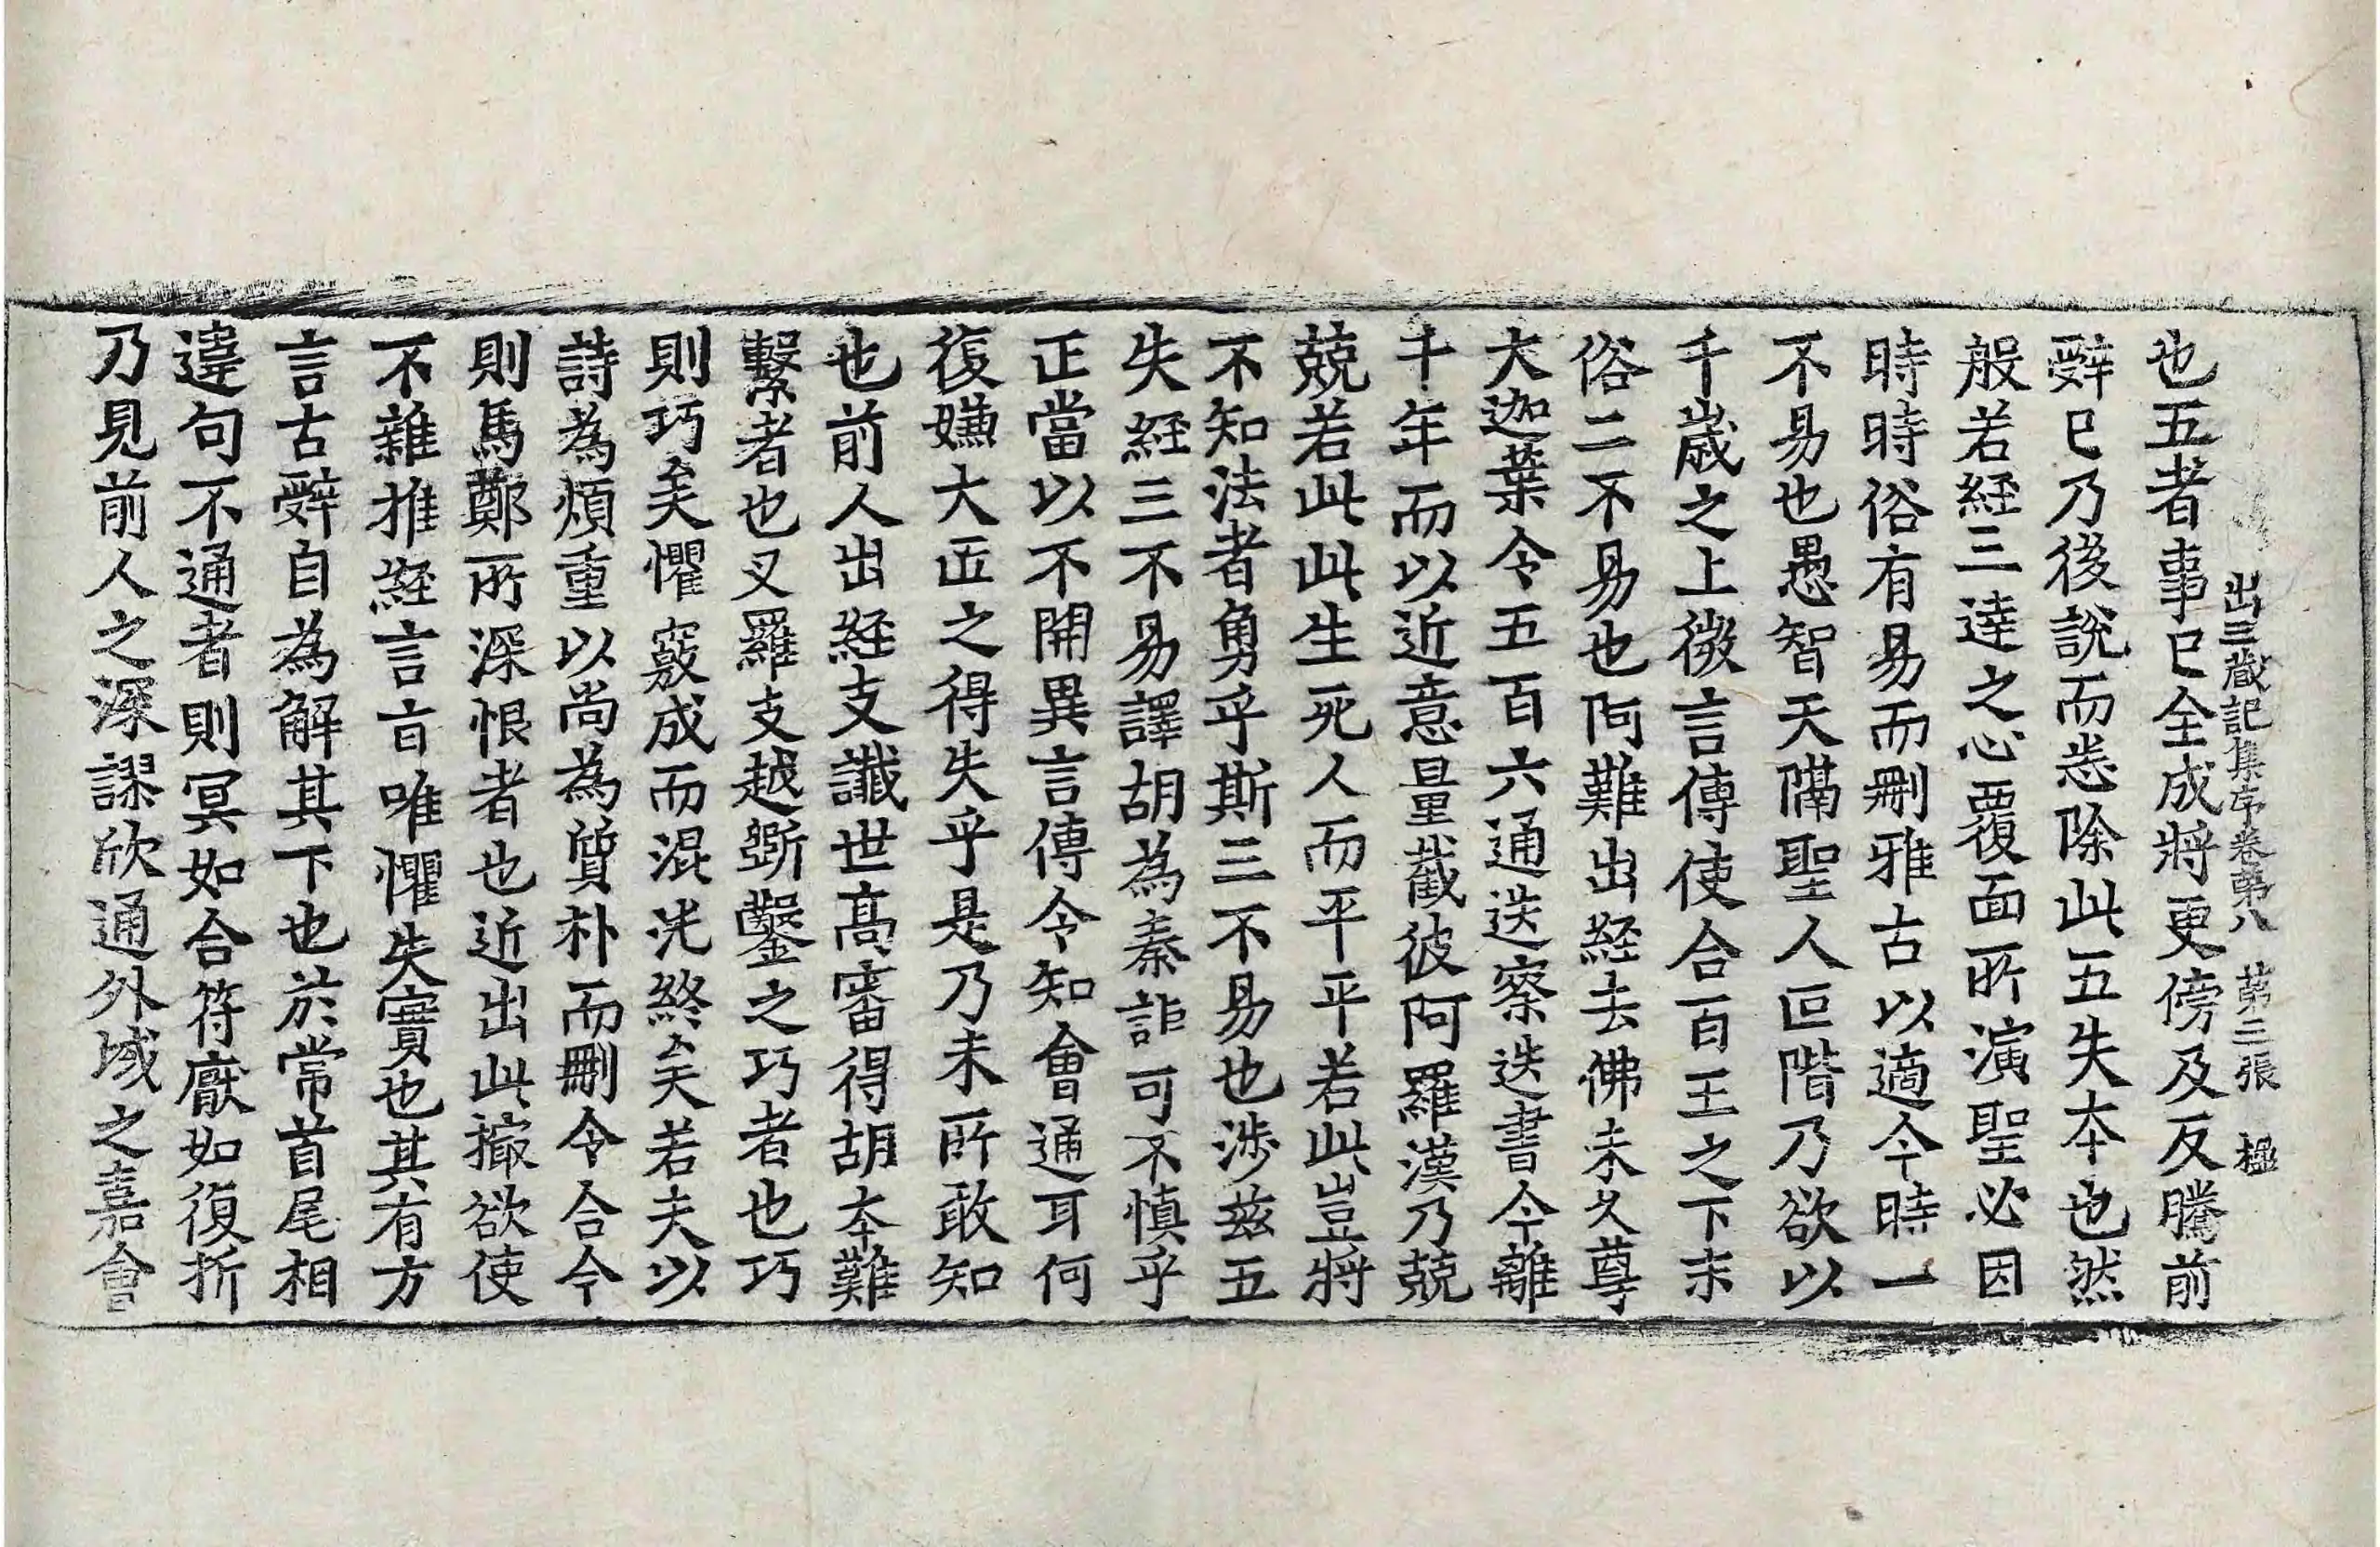 出三藏記集序卷第八　第二張　楹
也五者事已全成將更傍及反騰前
辤已乃後說而悉除此五失夲也然
般若經三達之心覆面所演聖必因
時時俗有易而刪雅古以適今時一
不易也愚智天隔聖人叵階乃欲以
千歲之上微言傳使合百王之下末
俗二不易也阿難出經去佛未久尊
大迦葉令五百六通迭察迭書今離
千年而以近意量截彼阿羅漢乃兢
兢若此此生死人而平平若此豈將
不知法者勇乎斯三不易也涉茲五
失經三不易譯胡為秦詎可不慎乎
正當以不開異言傳令知會通耳何
復嫌大匠之得失乎是乃未所敢知
也前人出經支讖世高審得胡夲難
繫者也叉羅支越斵鑿之巧者也巧
則巧矣懼竅成而混沌終矣若夫以
詩為煩重以尚為質朴而刪令合今
則馬鄭所深恨者也近出此撮欲使
不雜推經言旨唯懼失實也其有方
言古辤自為解其下也於常首尾相
違句不通者則冥如合符厭如復折
乃見前人之深謬欣通外域之嘉會